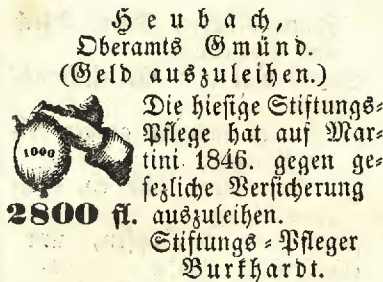 Heubach,
Oberamts Gmünd.
(Geld auszuleihen.)
Die hiesige Stiftungs=
Pflege hat auf Mar=
tini 1846. gegen ge=
sezliche Versicherung
2800 fl. auszuleihen.
Stiftungs = Pfleger
Burkhardt.
1000